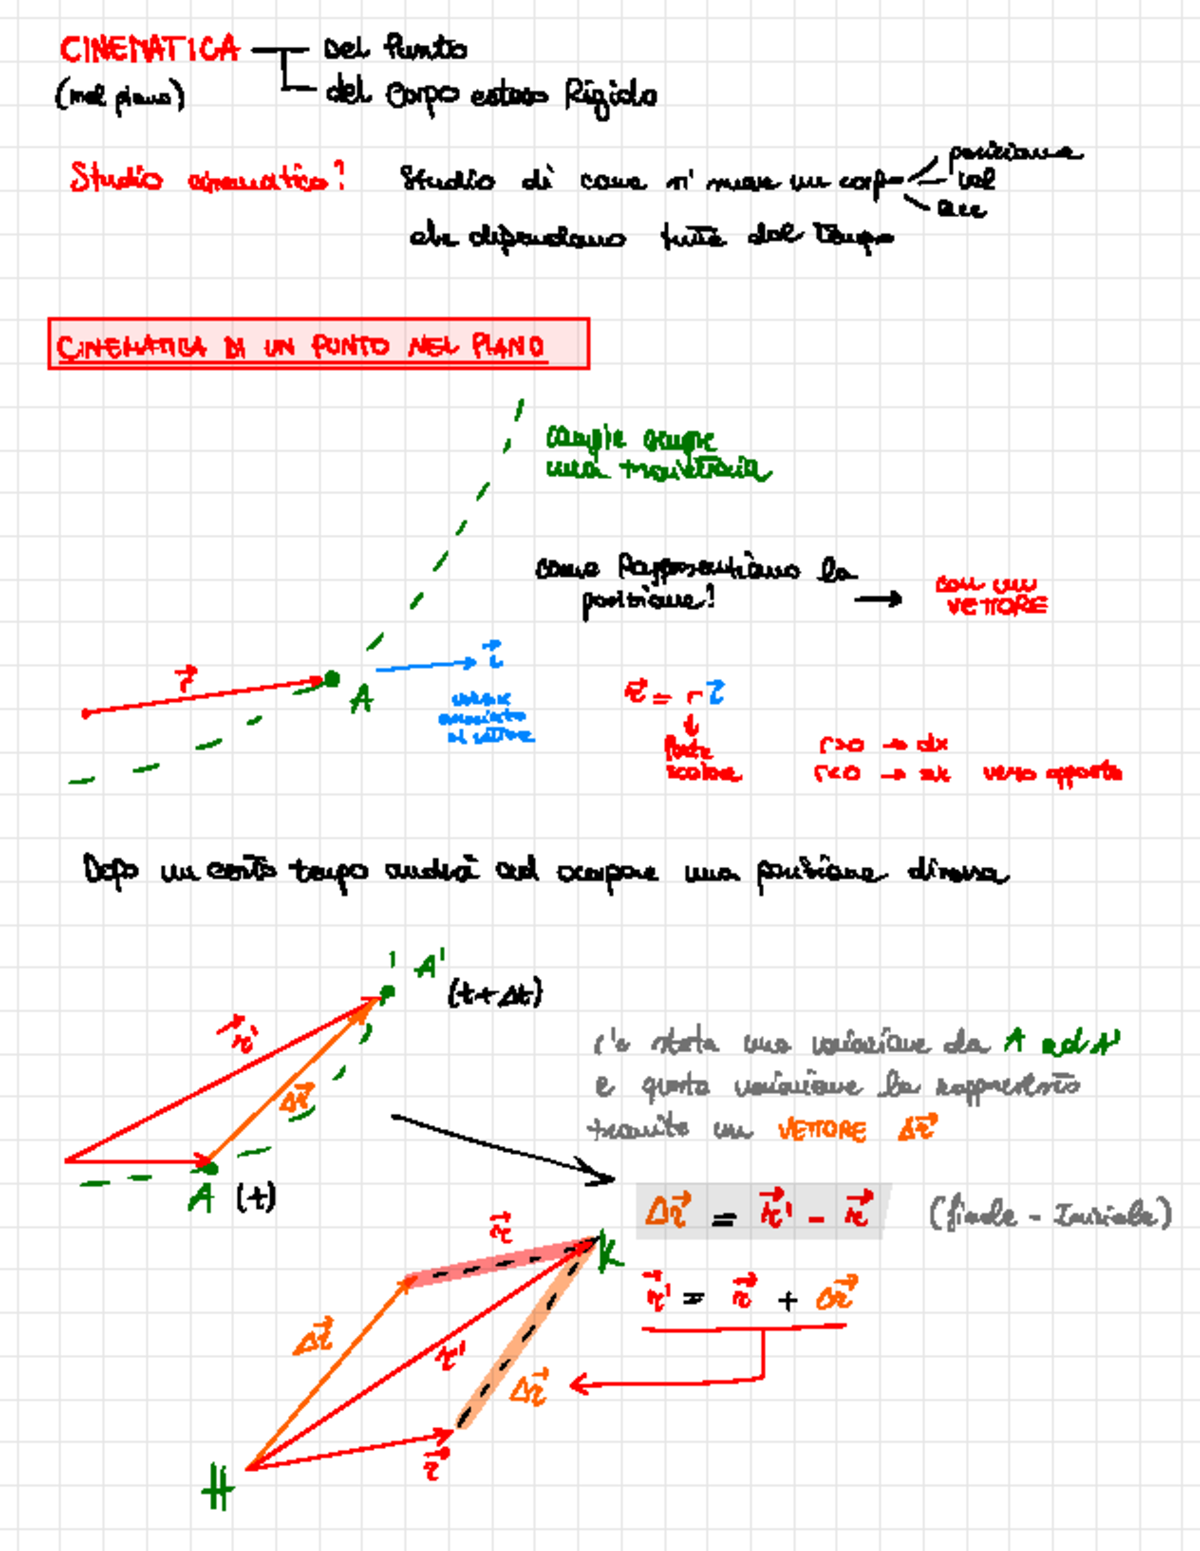 CINEMATICA
Del Punto
(nel piano)
del Corpo esteso Rigido
Studio cinematico?
Studio di come si muove un corpo
posizione
vel
acc
che dipendono tutte dal Tempo
CINEMATICA DI UN PUNTO NEL PIANO
compie sempre
una traiettoria
come Rappresentiamo la
posizione?
con un
VETTORE
r⃗
A
i⃗
versore
associato
al vettore
r⃗ = r i⃗
Parte
scalare
r>0 → dx
r<0 → sx verso opposto
Dopo un certo tempo andrà ad occupare una posizione diversa
A'
(t+Δt)
r⃗'
Δr⃗
A (t)
c'è stata una variazione da A ad A'
e questa variazione la rappresento
tramite un VETTORE Δr⃗
Δr⃗ = r⃗' - r⃗ (finale - Iniziale)
r⃗
K
r⃗' = r⃗ + Δr⃗
Δr⃗
r'
Δr⃗
r⃗
H